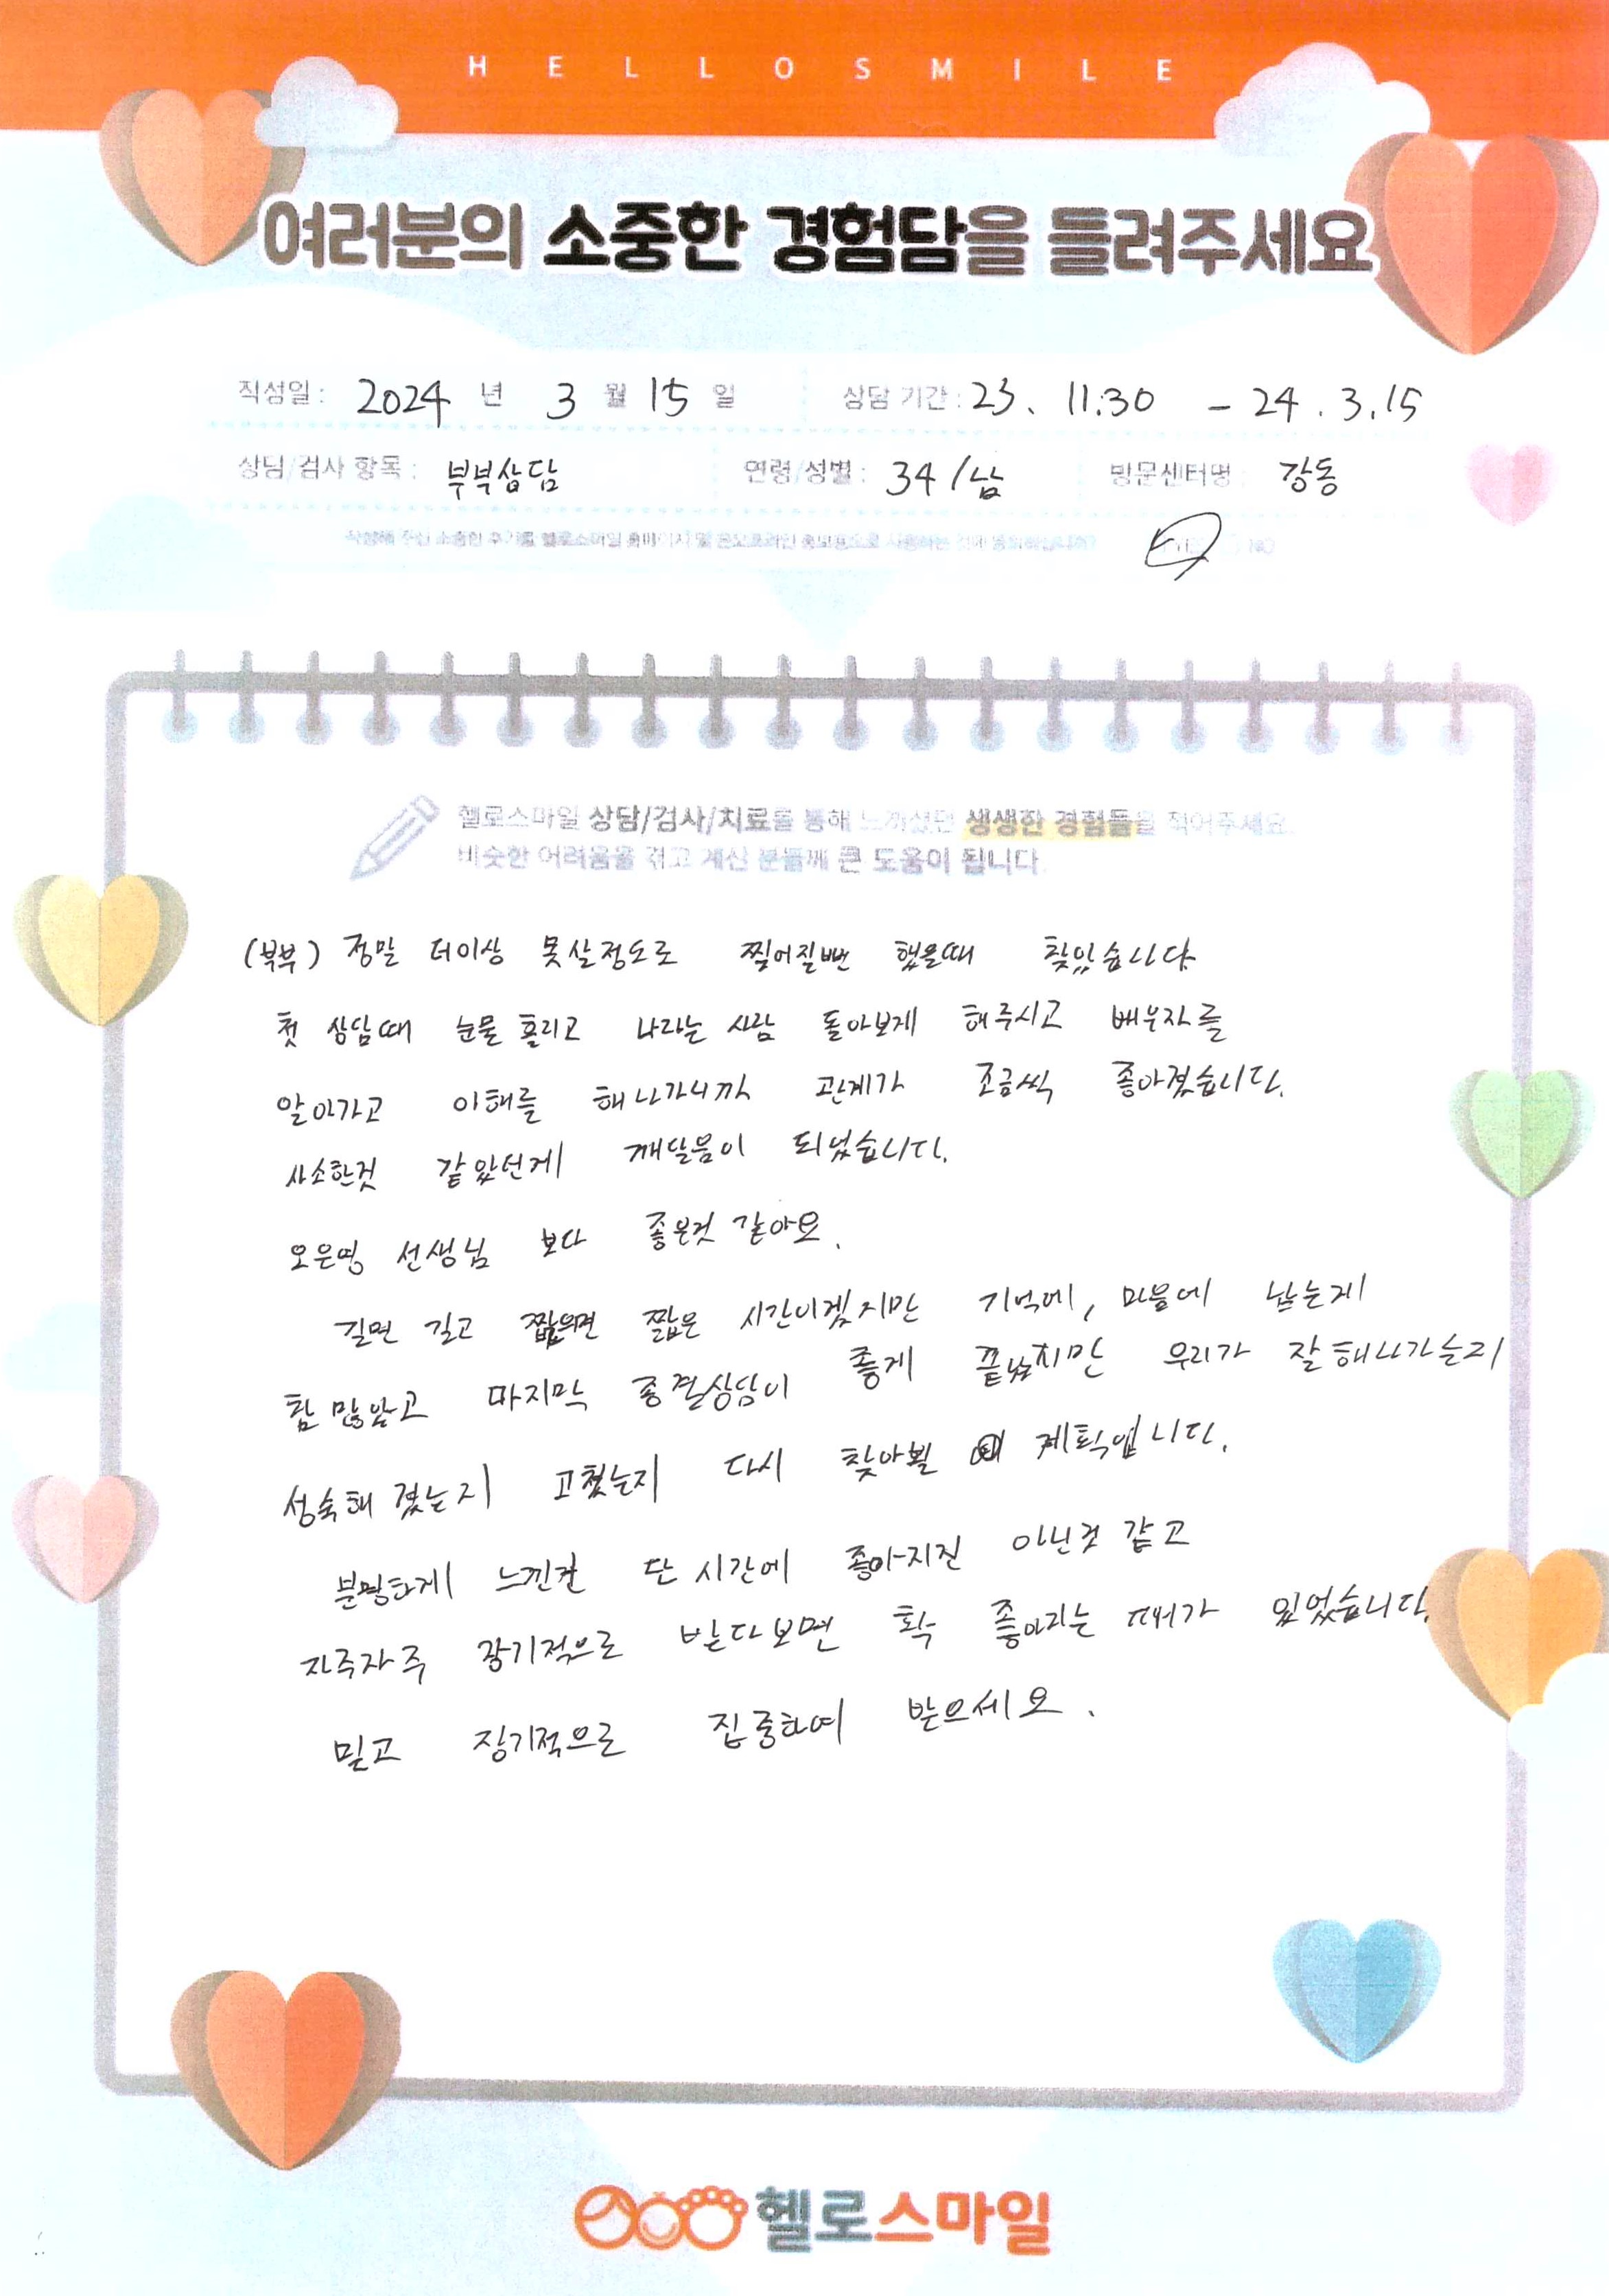 HELLOSMILE
여러분의 소중한 경험담을 들려주세요
작성일 : 2024 년 3 월 15 일 상담 기간 : 23. 11.30 - 24. 3.15
상담/검사 항목 : 부부상담 연령/성별 : 34 / 남 방문센터명 : 강동
작성해 주신 소중한 후기를 헬로스마일 홈페이지 및 온오프라인 홍보용으로 사용하는 것에 동의하십니까?
헬로스마일 상담/검사/치료를 통해 느끼셨던 생생한 경험들을 적어주세요.
비슷한 어려움을 겪고 계신 분들께 큰 도움이 됩니다.
(부부) 정말 더이상 못살정도로 찢어질뻔 했을때 찾았습니다
첫 상담때 눈물 흘리고 나라는 사람 돌아보게 해주시고 배우자를
알아가고 이해를 해나가니까 관계가 조금씩 좋아졌습니다.
사소한것 같았던게 깨달음이 되었습니다.
오은영 선생님 보다 좋은것 같아요.
길면 길고 짧으면 짧은 시간이겠지만 기억에, 마음에 남는게
참 많았고 마지막 종결상담이 좋게 끝났지만 우리가 잘해나가는지
성숙해 졌는지 고쳤는지 다시 찾아뵐 계획입니다.
분명하게 느낀건 단시간에 좋아지진 아닌것 같고
자주자주 장기적으로 받다보면 확 좋아지는 때가 있었습니다.
믿고 장기적으로 집중하여 받으세요.
헬로스마일